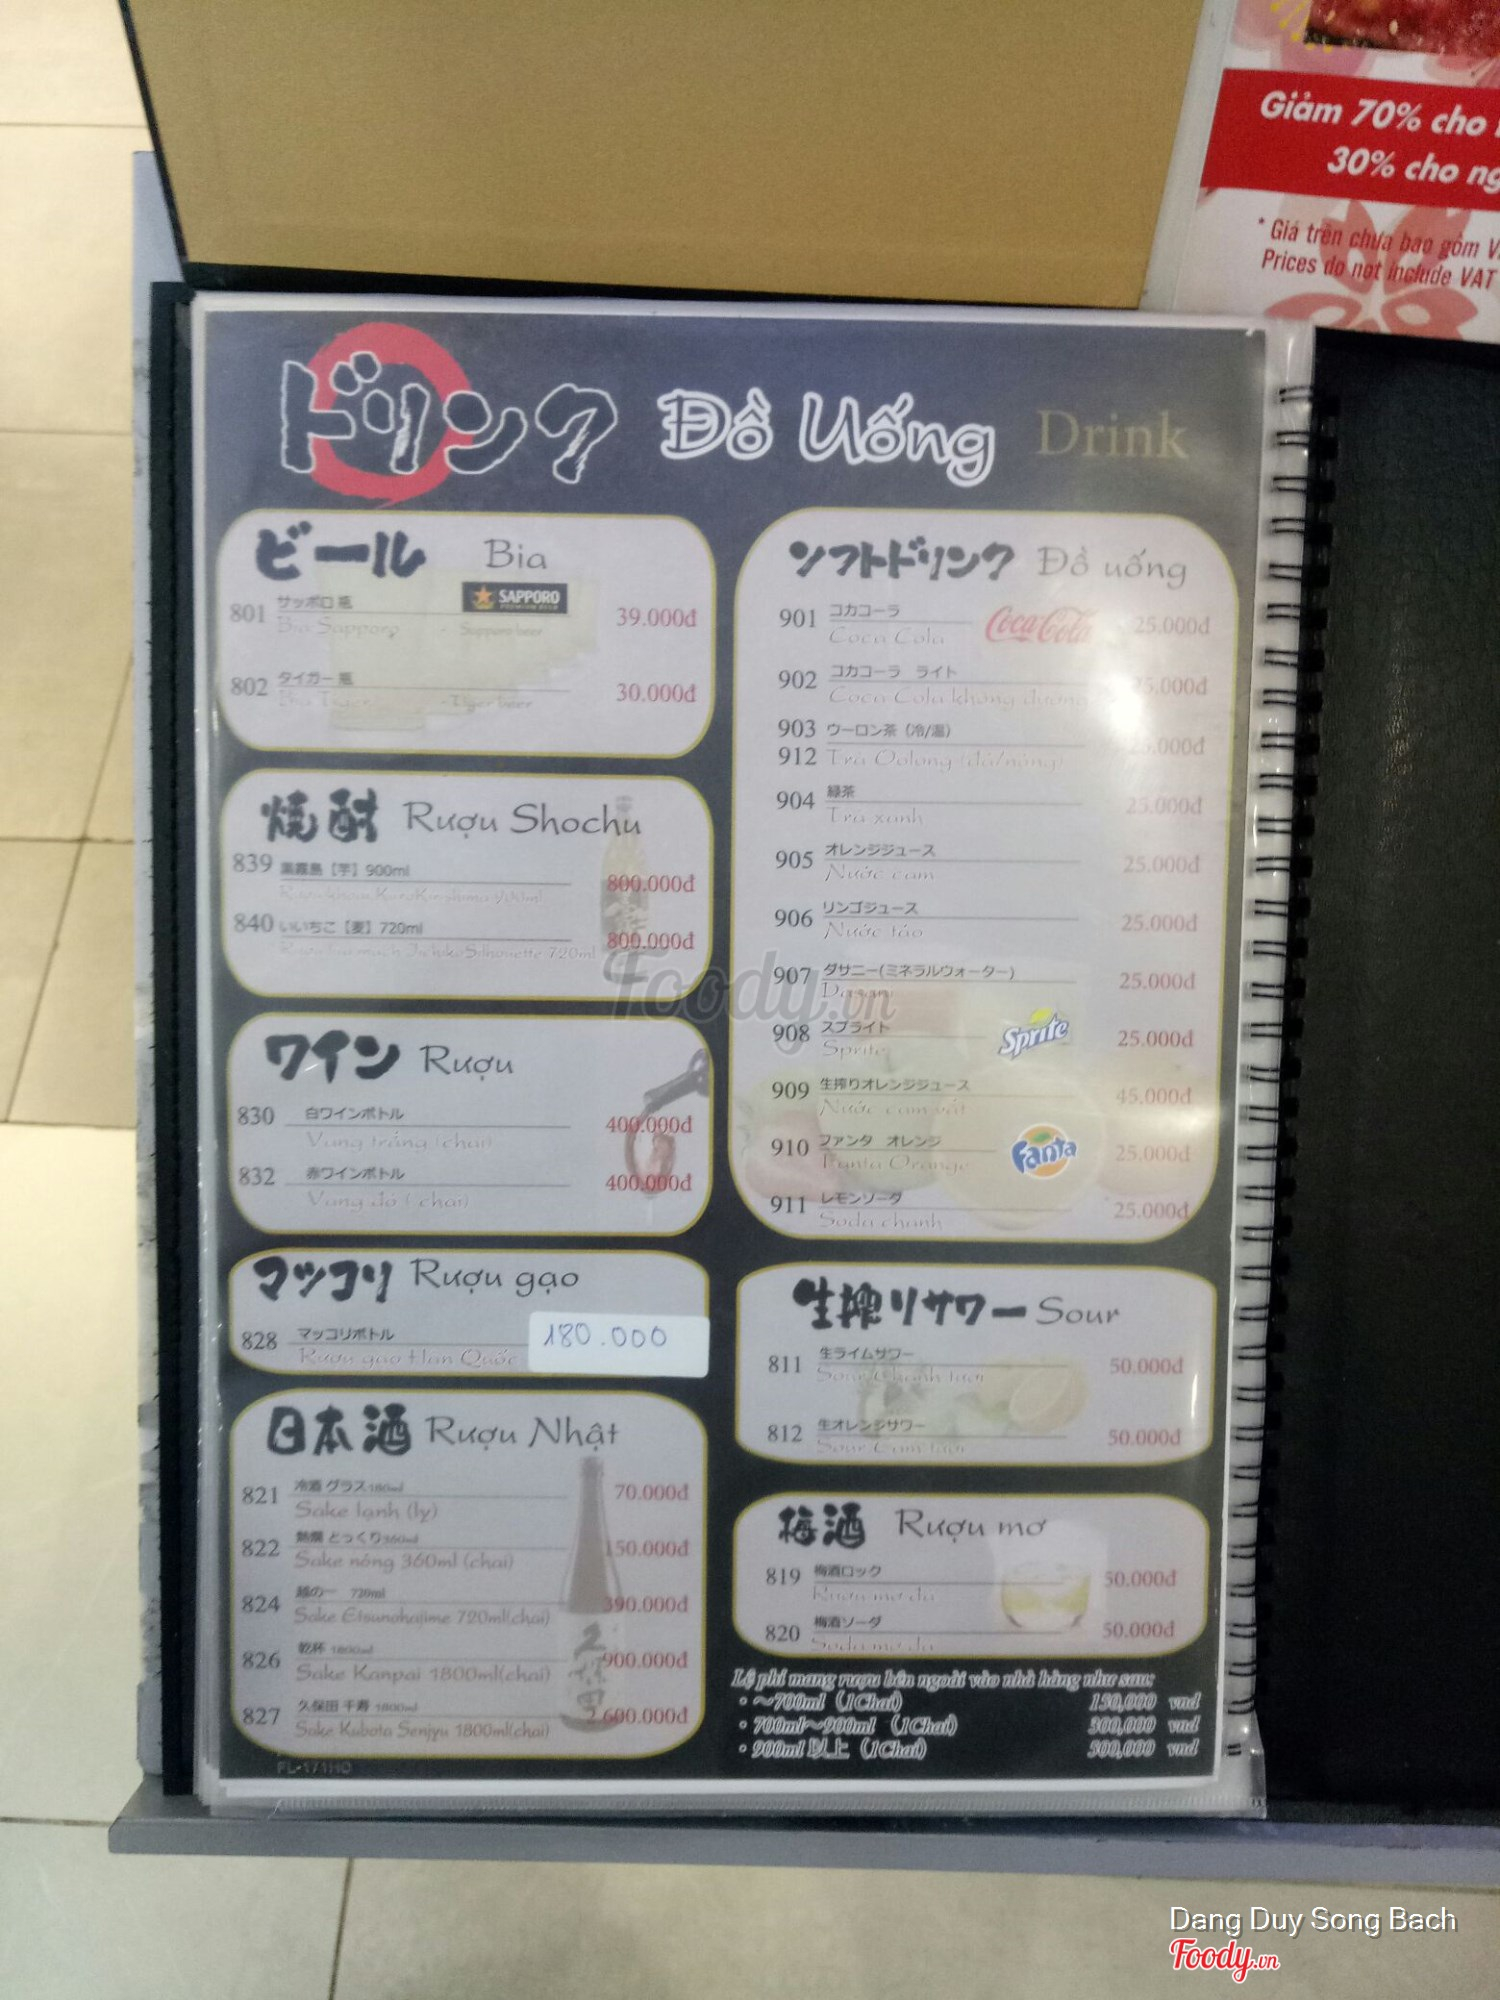 Giảm 70% cho
30% cho
* Giá trên chưa bao gồm
Prices do not include VAT
ドリンク Đồ Uống Drink
ビール Bia
801 サッポロ 瓶 SAPPORO 39.000đ
Bia Sapporo - Sapporo beer
802 タイガー 瓶 30.000đ
Bia Tiger - Tiger beer
焼酎 Rượu Shochu
839 黒霧島【芋】900ml 800.000đ
840 いいちこ【麦】720ml 800.000đ
ワイン Rượu
830 白ワインボトル 400.000đ
Vang trắng (chai)
832 赤ワインボトル 400.000đ
Vang đỏ (chai)
マッコリ Rượu gạo
828 マッコリボトル 180.000
Rượu gạo Hàn Quốc
日本酒 Rượu Nhật
821 冷酒 グラス 180ml 70.000đ
Sake lạnh (ly)
822 熱燗 とっくり 360ml 150.000đ
Sake nóng 360ml (chai)
824 越の一 720ml 390.000đ
Sake Etsunohajime 720ml(chai)
826 乾杯 1800ml 900.000đ
Sake Kanpai 1800ml(chai)
827 久保田 千寿 1800ml 2.600.000đ
Sake Kubota Senjyu 1800ml(chai)
FL-171HD
ソフトドリンク Đồ uống
901 コカコーラ Coca-Cola 25.000đ
Coca Cola
902 コカコーラ ライト 25.000đ
Coca Cola không đường
903 ウーロン茶 (冷/温) 25.000đ
912 Trà Oolong (đá/nóng)
904 緑茶 25.000đ
Trà xanh
905 オレンジジュース 25.000đ
Nước cam
906 リンゴジュース 25.000đ
Nước táo
907 ダサニー(ミネラルウォーター) 25.000đ
Dasani
908 スプライト Sprite 25.000đ
Sprite
909 生搾りオレンジジュース 45.000đ
Nước cam vắt
910 ファンタ オレンジ Fanta 25.000đ
Fanta Orange
911 レモンソーダ 25.000đ
Soda chanh
生搾りサワー Sour
811 生ライムサワー 50.000đ
Sour Chanh tươi
812 生オレンジサワー 50.000đ
Sour Cam tươi
梅酒 Rượu mơ
819 梅酒ロック 50.000đ
Rượu mơ đá
820 梅酒ソーダ 50.000đ
Soda mơ đá
Lệ phí mang rượu bên ngoài vào nhà hàng như sau:
・~700ml (1Chai) 150,000 vnd
・700ml~900ml (1Chai) 300,000 vnd
・900ml 以上 (1Chai) 500,000 vnd
Foody.vn
Dang Duy Song Bach
Foody.vn